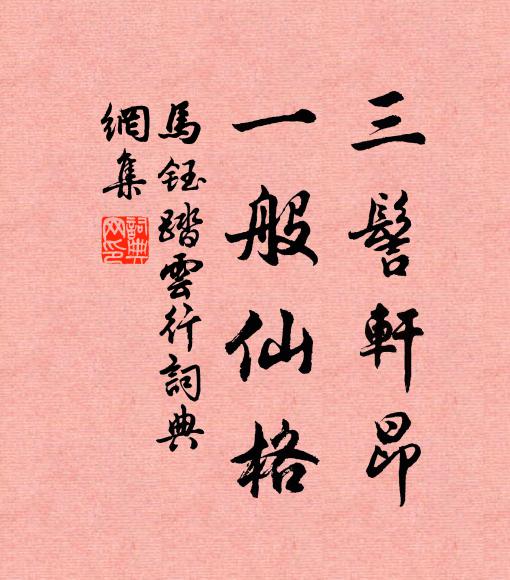 三髻軒昂
一般仙格
馬鈺踏雲行詞典
網集
詞典
网印